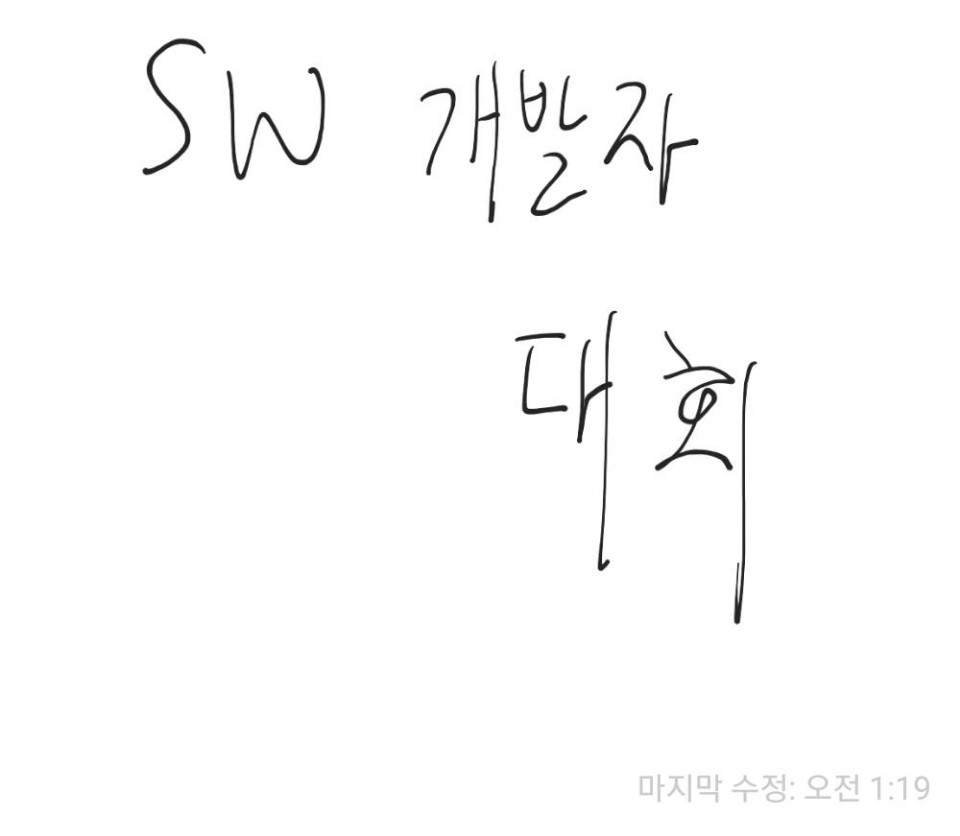 SW 개발자
대회
마지막 수정: 오전 1:19